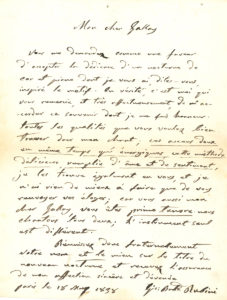 Mon cher Gallay
Vous me demandez comme une faveur
d'accepter la dédicace d'un nocturne de
cor et piano dont je vous ai, dites vous
inspiré le motif. En vérité, c'est moi qui
vous remercie et très affectueusement de m'ac-
corder ce souvenir dont je me fais honneur.
toutes les qualités que vous voulez bien
trouver dans mon chant, ces accens doux
en même temps que
délicieuse remplie d'âme et de sentiment,
je les trouve également en vous, et je
n'ai rien de mieux à faire que de vous
renvoyer vos éloges; car vous aussi mon
cher Gallay vous êtes primo tenore nous
chantons tous deux; l'instrument seul
est différent.
Réunissez donc fraternellement
votre nom et le mien sur le titre du
nouveau nocturne et recevez l'assurance
de mon affection sincère et dévouée
Paris le 18 May 1838
Rubini